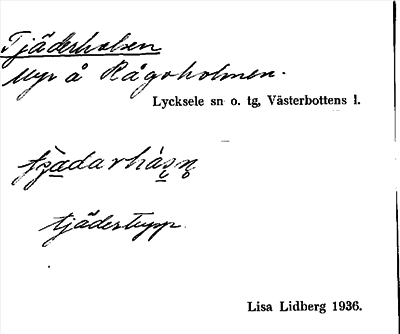 Tjäderhalsen
Myr å Rågoholmen.
Lycksele sn o. tg, Västerbottens l.
tjädertupp.
Lisa Lidberg 1936.